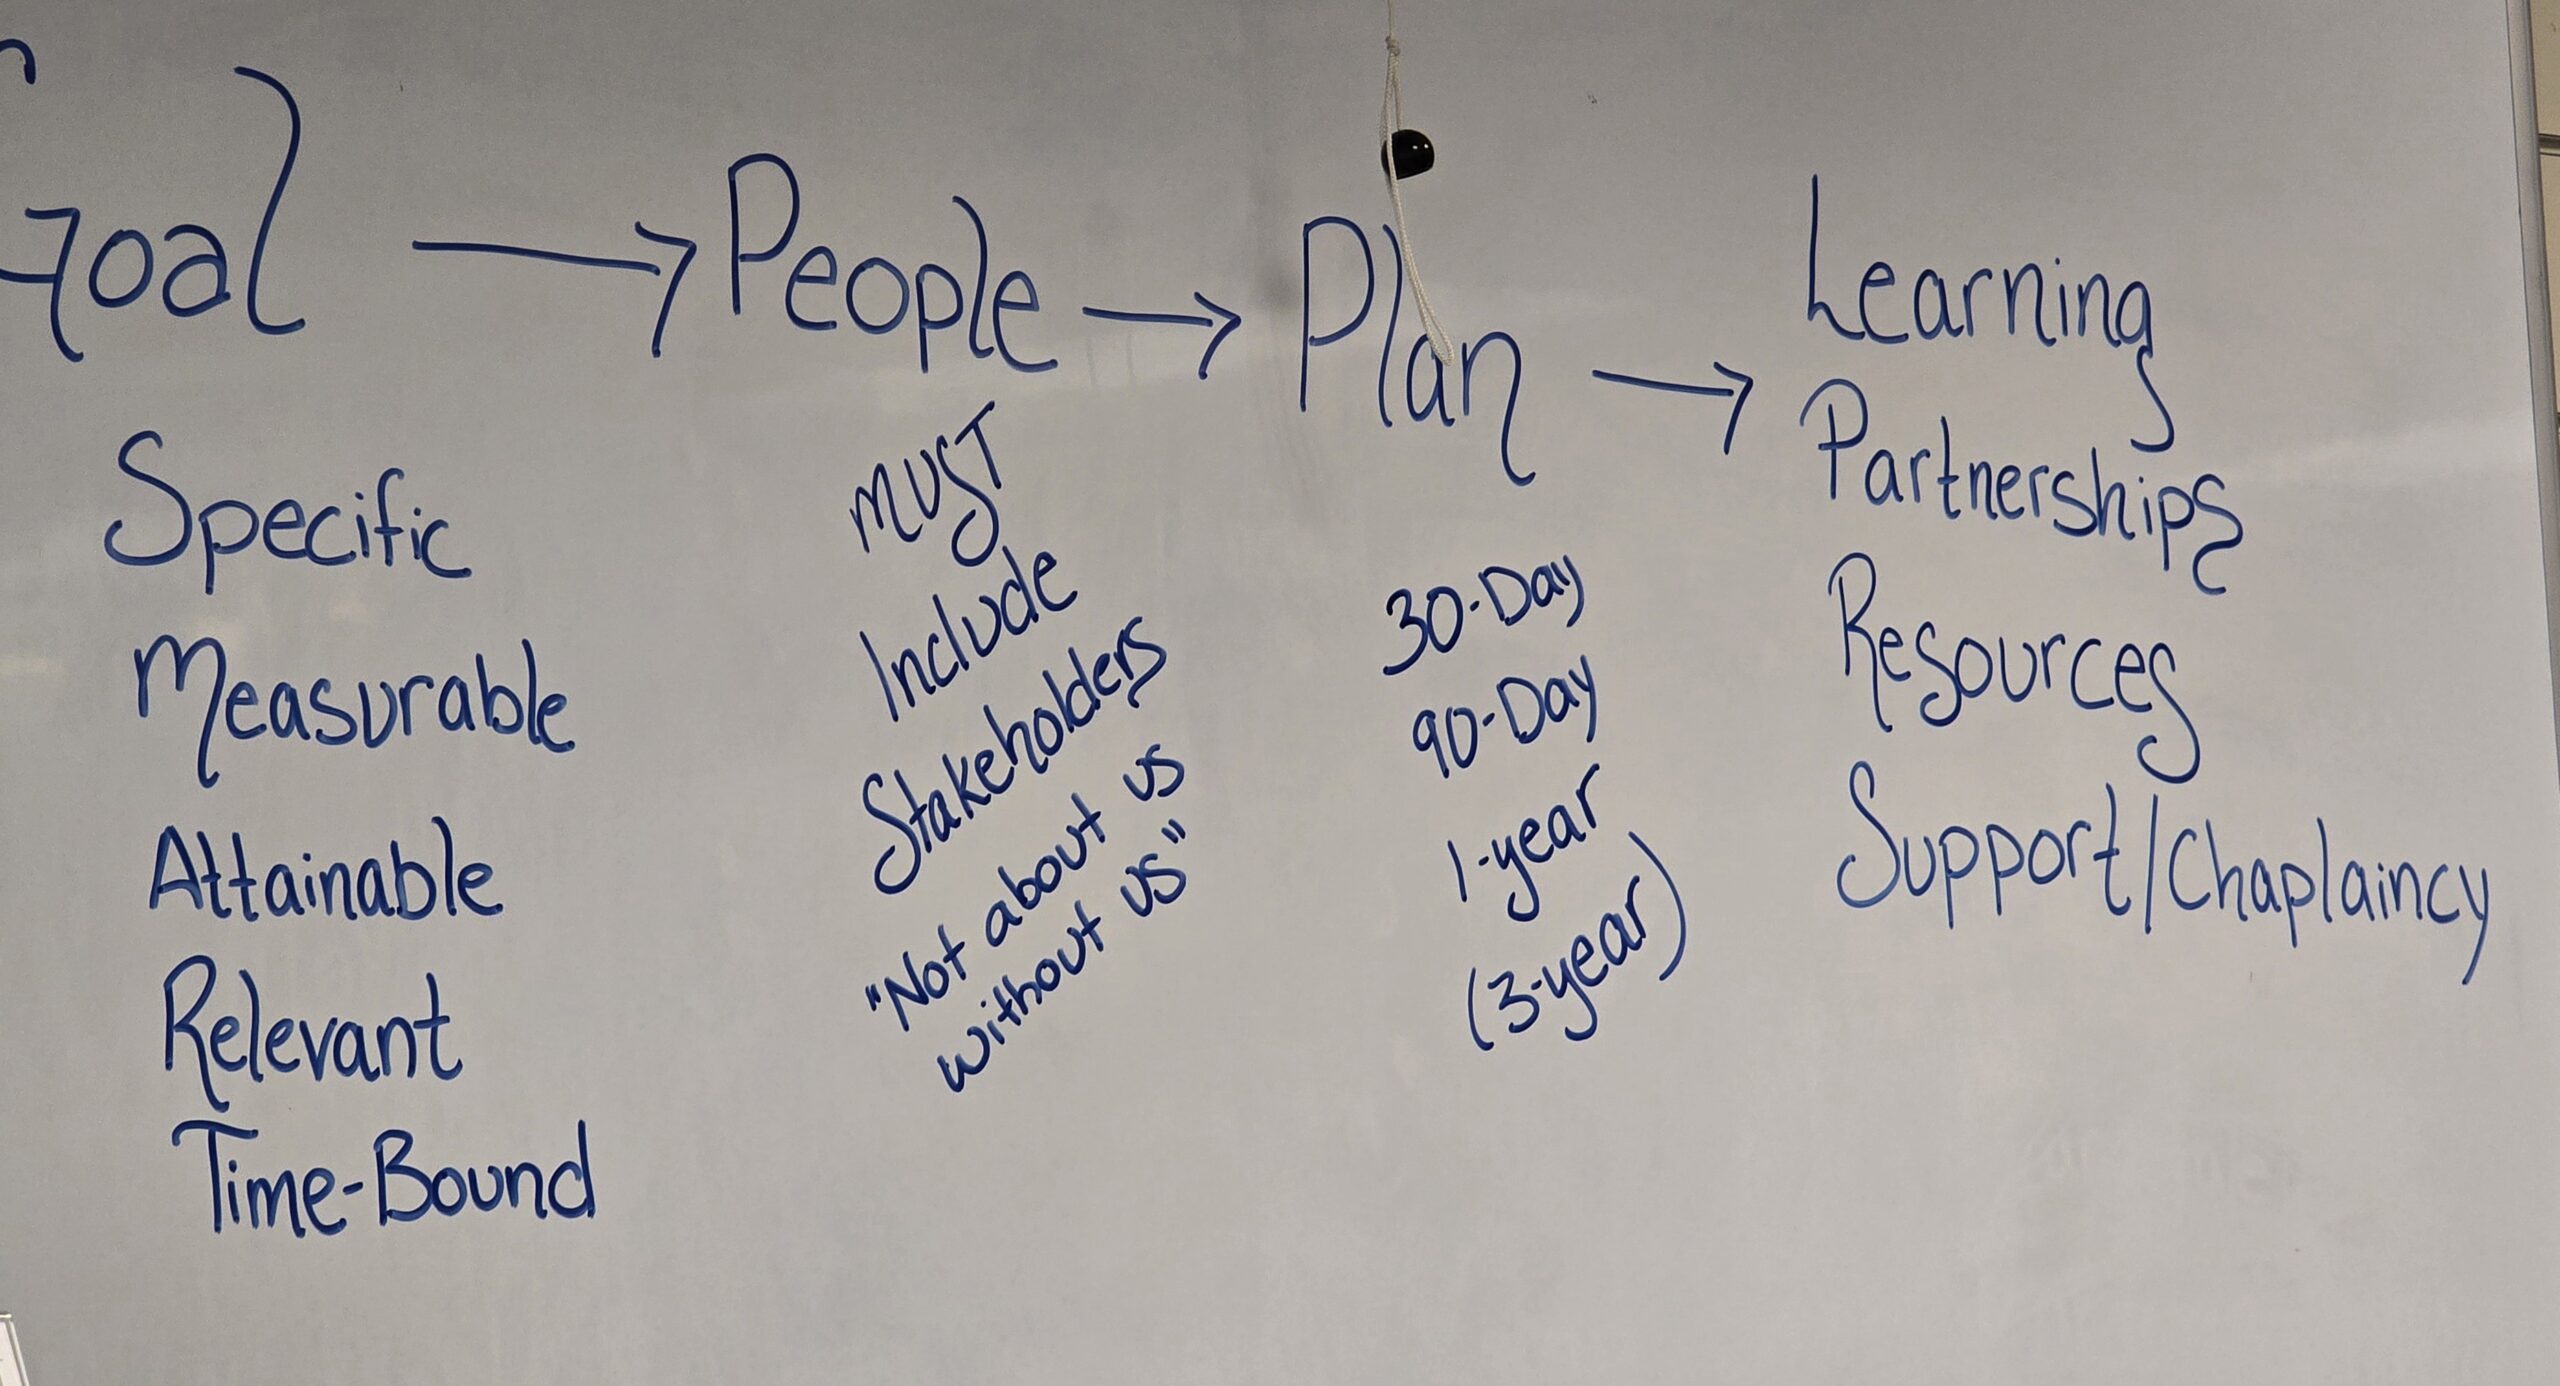 Goal → People → Plan → Learning
Partnerships
Resources
Support/Chaplaincy
Specific
Measurable
Attainable
Relevant
Time-Bound
MUST
Include
Stakeholders
"Not about us
without us"
30-Day
90-Day
1-year
(3-year)